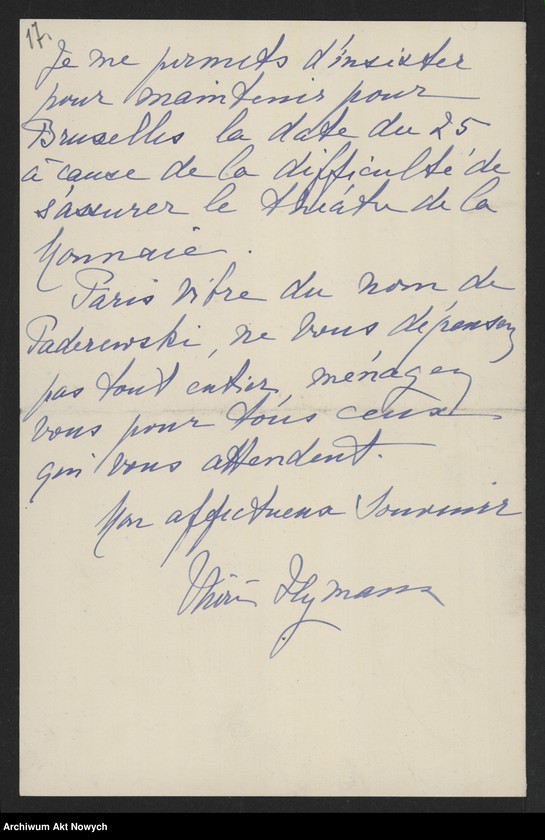 17.
Je me permets d'insister
pour maintenir pour
Bruxelles la date du 25
à cause de la difficulté de
s'assurer le théâtre de la
Monnaie.
Paris vibre du nom de
Paderewski, ne vous dépensez
pas tout entier, ménagez
vous pour tous ceux
qui vous attendent.
Mon affectueux souvenir
Hymans
Archiwum Akt Nowych